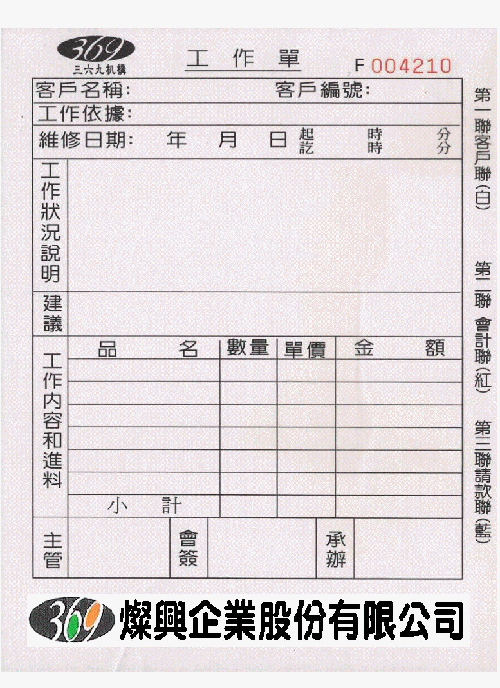 369
三六九机構
工作單
F 004210
客戶名稱: 客戶編號:
工作依據:
維修日期: 年 月 日 起 時 分
訖 時 分
工作狀況說明
建議
工作内容和進料
品名 數量 單價 金額
小計
主管 會簽 承辦
第一聯客戶聯(白)
第二聯會計聯(紅)
第三聯請款聯(藍)
369 燦興企業股份有限公司